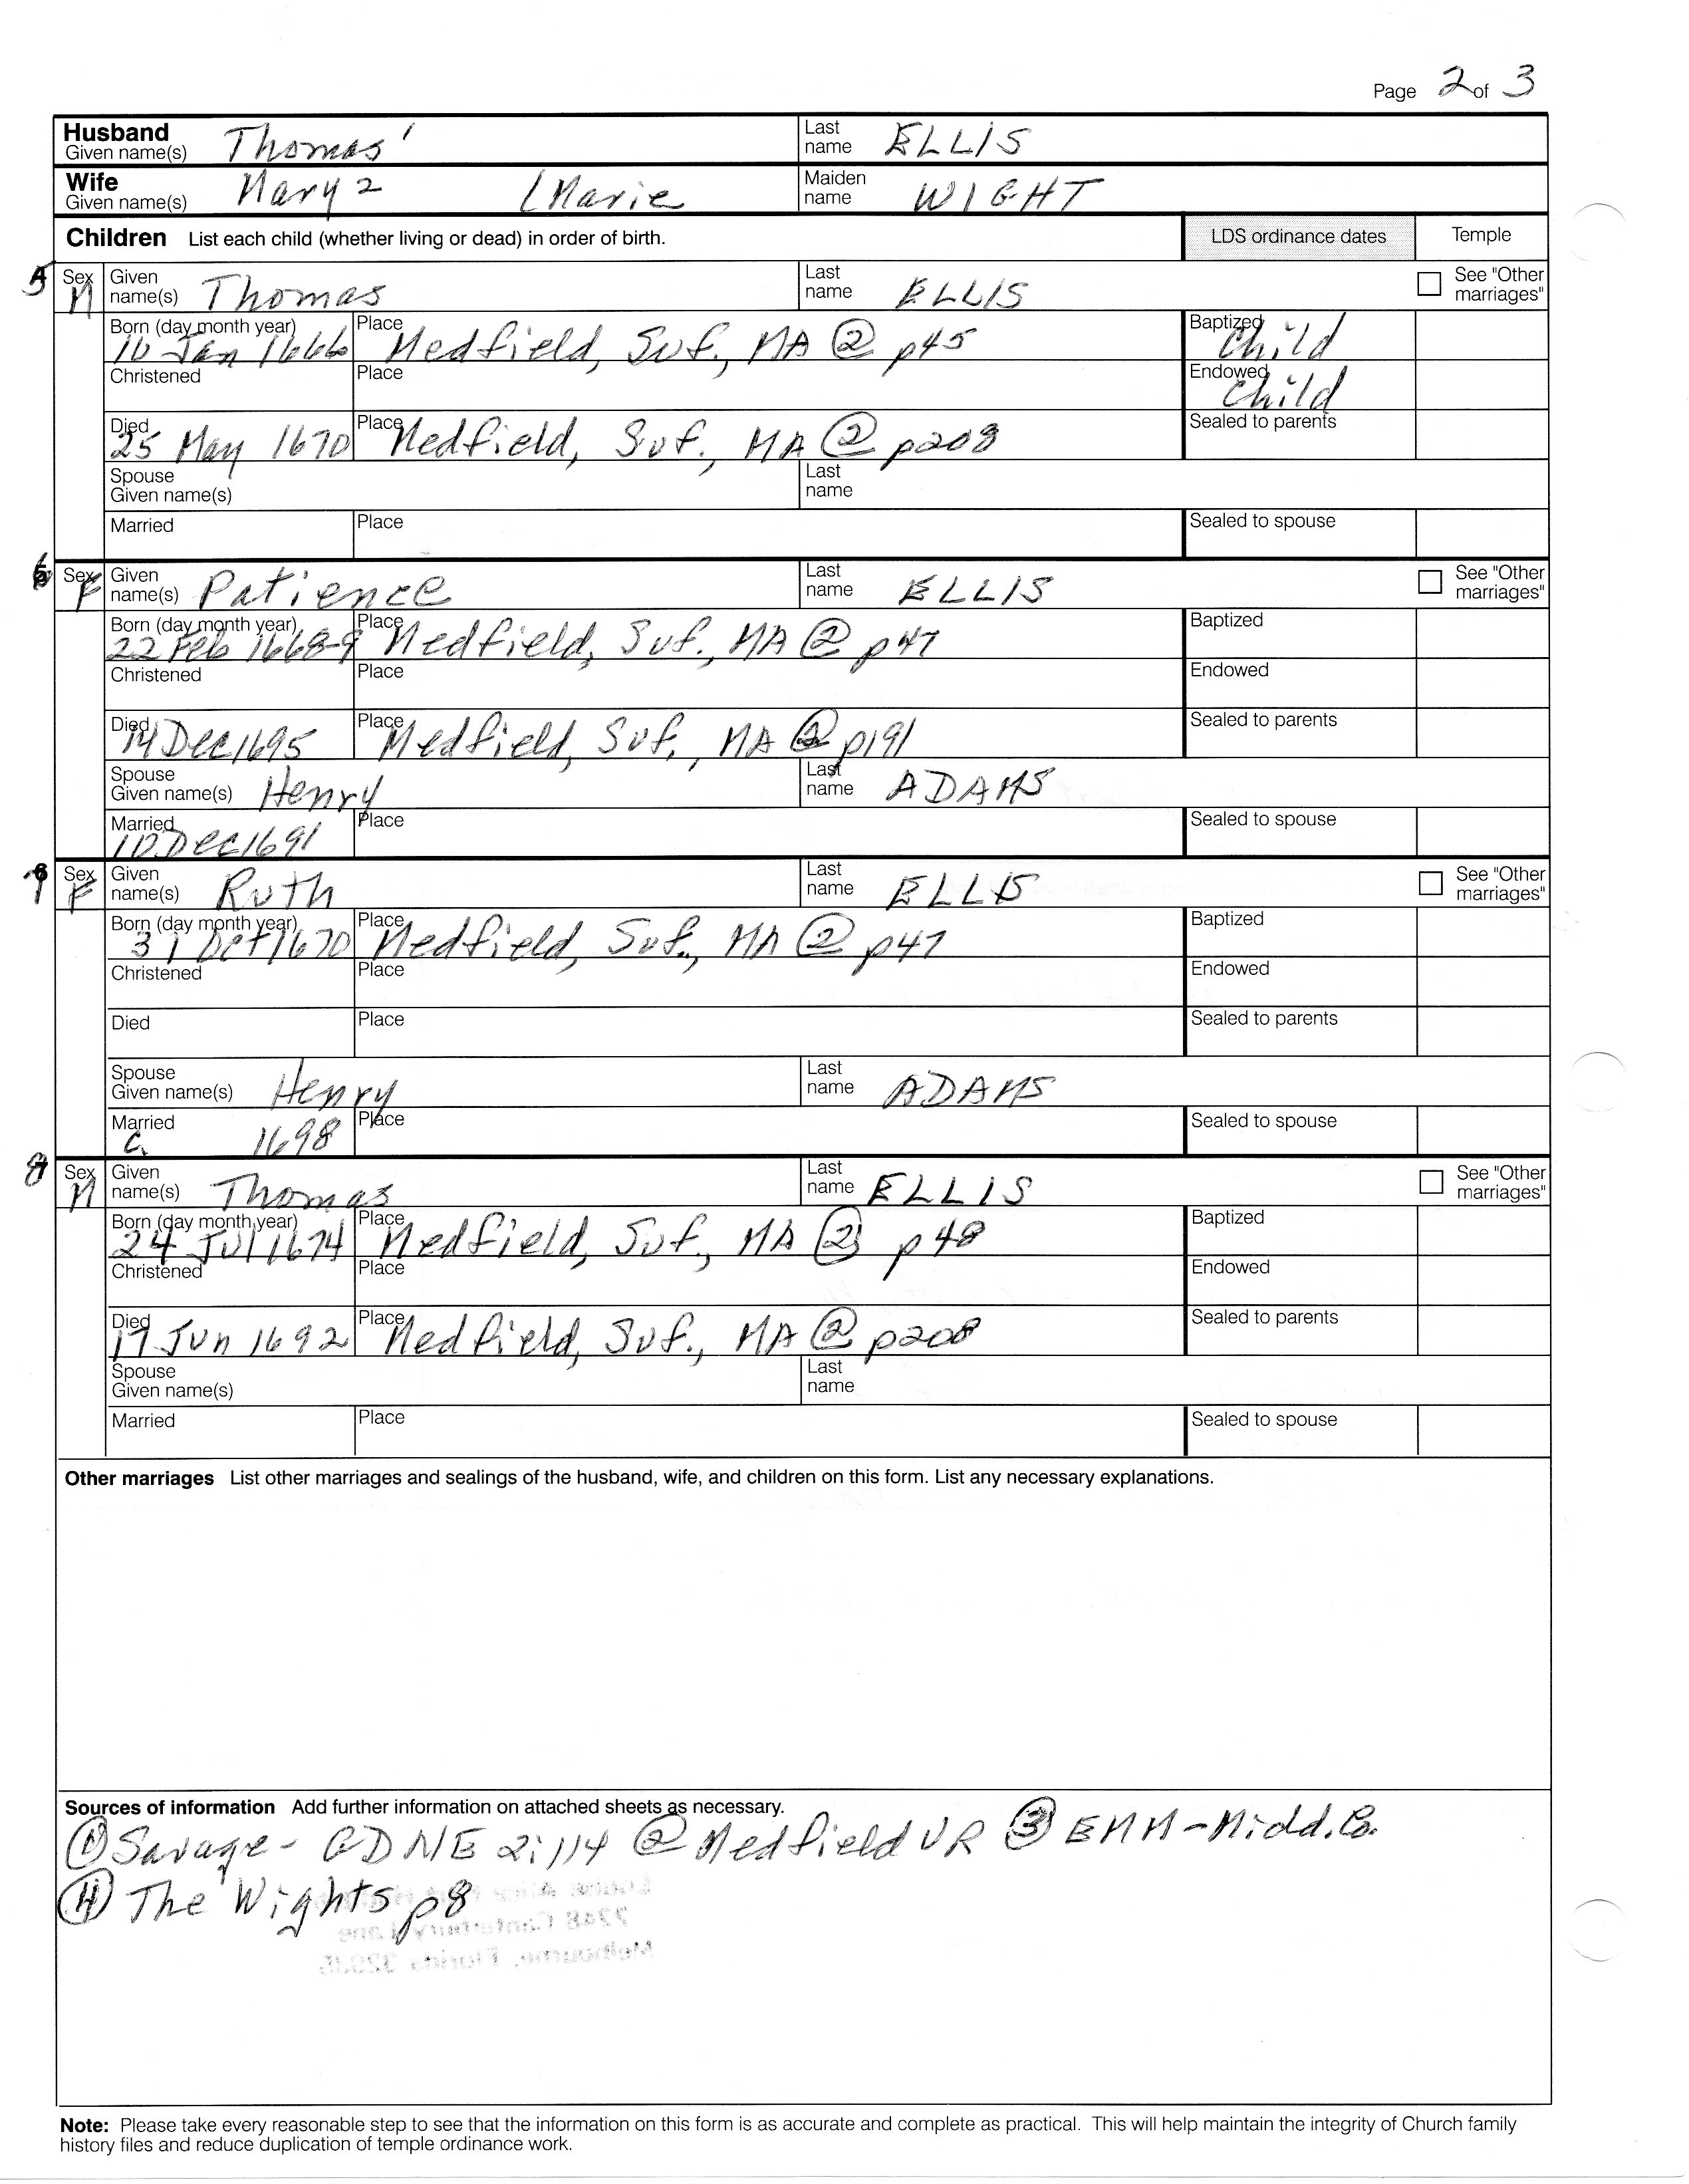 Page 2 of 3
Husband Given name(s) Thomas 1 Last name ELLIS
Wife Given name(s) Mary 2 (Marie Maiden name WIGHT
Children List each child (whether living or dead) in order of birth. LDS ordinance dates Temple
5 Sex M Given name(s) Thomas Last name ELLIS See "Other marriages"
Born (day month year) 10 Jan 1666 Place Medfield, Suf., MA @ 2 p45 Baptized Child
Christened Place Endowed Child
Died 25 May 1670 Place Medfield, Suf., MA 2 p208 Sealed to parents
Spouse Given name(s) Last name
Married Place Sealed to spouse
6 Sex F Given name(s) Patience Last name ELLIS See "Other marriages"
Born (day month year) 22 Feb 1668-9 Place Medfield, Suf., MA 2 p47 Baptized
Christened Place Endowed
Died 14 Dec 1695 Place Medfield, Suf., MA 2 p191 Sealed to parents
Spouse Given name(s) Henry Last name ADAMS
Married 10 Dec 1691 Place Sealed to spouse
7 Sex F Given name(s) Ruth Last name ELLIS See "Other marriages"
Born (day month year) 31 Oct 1670 Place Medfield, Suf., MA 2 p47 Baptized
Christened Place Endowed
Died Place Sealed to parents
Spouse Given name(s) Henry Last name ADAMS
Married c. 1698 Place Sealed to spouse
8 Sex M Given name(s) Thomas Last name ELLIS See "Other marriages"
Born (day month year) 24 Jul 1674 Place Medfield, Suf., MA 2 p48 Baptized
Christened Place Endowed
Died 17 Jun 1692 Place Medfield, Suf., MA 2 p208 Sealed to parents
Spouse Given name(s) Last name
Married Place Sealed to spouse
Other marriages List other marriages and sealings of the husband, wife, and children on this form. List any necessary explanations.
Sources of information Add further information on attached sheets as necessary.
1 Savage - GDNE 2:114 2 Medfield VR 3 EMM - Midd. Co.
4 The Wights p8
Note: Please take every reasonable step to see that the information on this form is as accurate and complete as practical. This will help maintain the integrity of Church family
history files and reduce duplication of temple ordinance work.